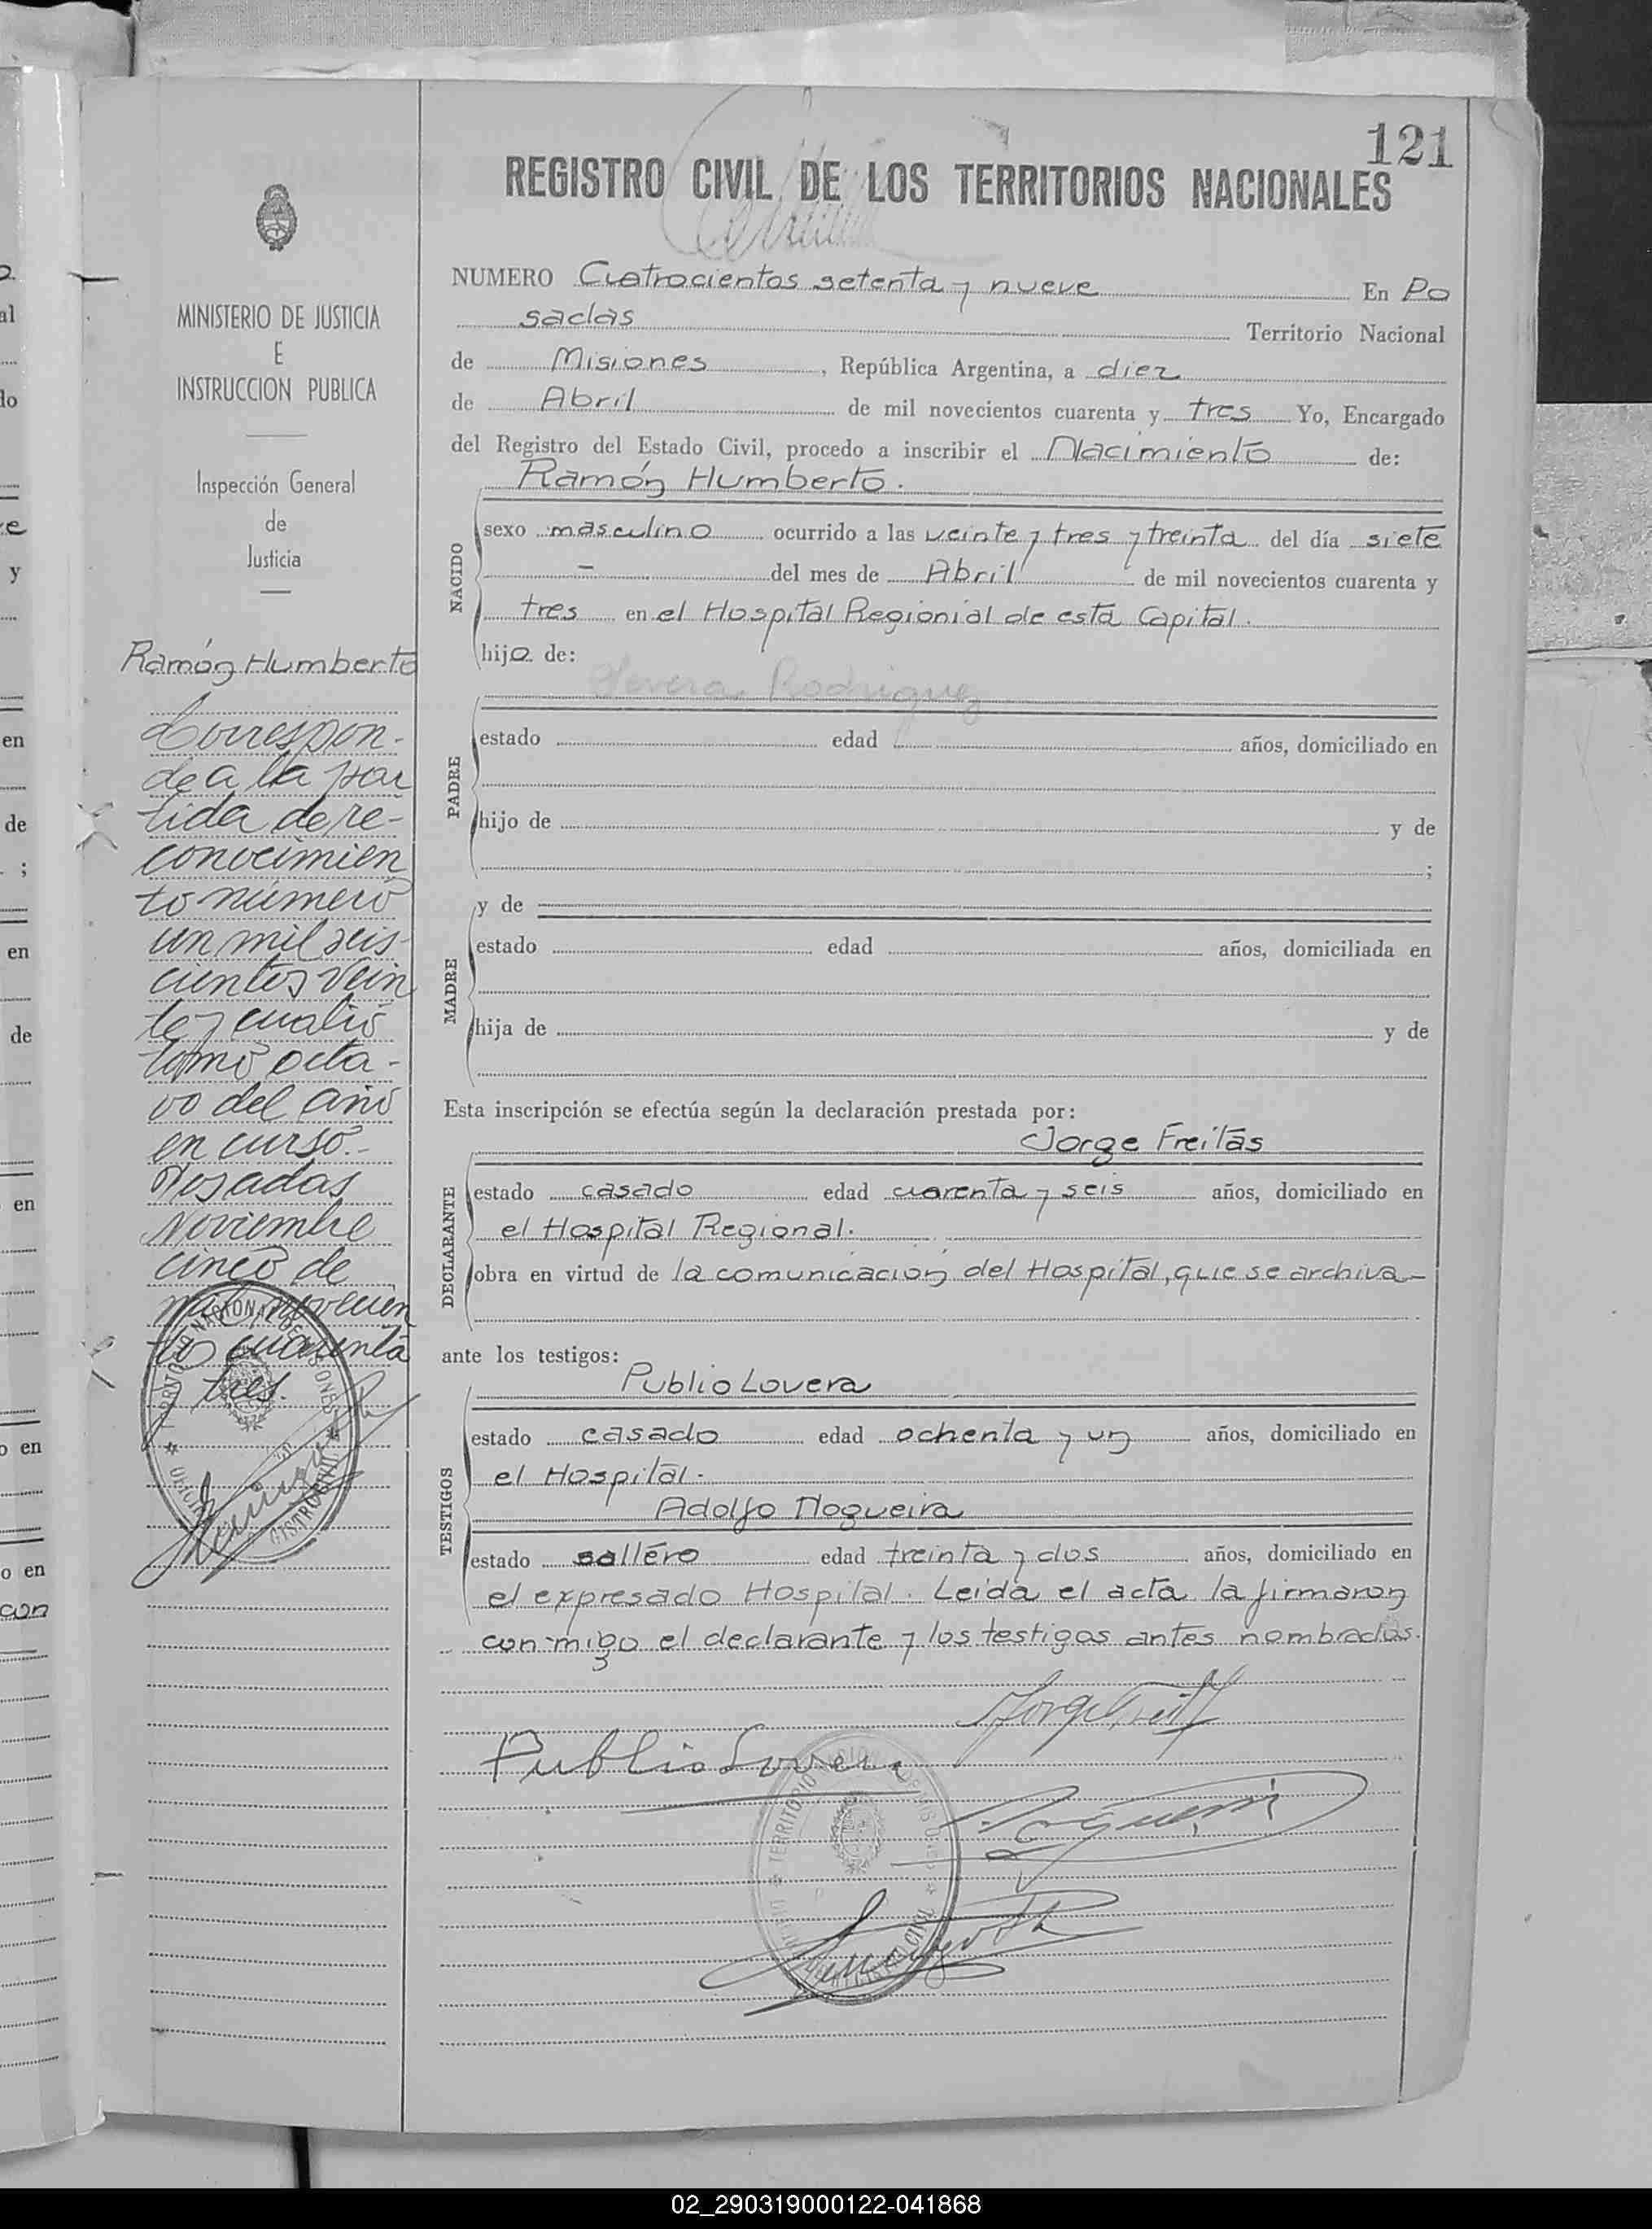 121
REGISTRO CIVIL DE LOS TERRITORIOS NACIONALES
MINISTERIO DE JUSTICIA
E
INSTRUCCION PUBLICA
Inspección General
de
Justicia
Ramón Humberto
Correspon-
de a la par
tida de re-
conocimien
to número
un mil seis-
cientos vein
te y cuatro
tomo octa-
vo del año
en curso.-
Posadas
Noviembre
cinco de
mil novecien
tos cuarenta
y tres.
NUMERO Cuatrocientos setenta y nueve En Po
sadas Territorio Nacional
de Misiones, República Argentina, a diez
de Abril de mil novecientos cuarenta y tres Yo, Encargado
del Registro del Estado Civil, procedo a inscribir el Nacimiento de:
Ramón Humberto.
NACIDO
sexo masculino ocurrido a las veinte y tres y treinta del día siete
- del mes de Abril de mil novecientos cuarenta y
tres en el Hospital Regionial de esta Capital.
hijo de:
Severa Rodriguez
PADRE
estado edad años, domiciliado en
hijo de y de
;
y de
MADRE
estado edad años, domiciliada en
hija de y de
Esta inscripción se efectúa según la declaración prestada por:
Jorge Freitas
DECLARANTE
estado casado edad cuarenta y seis años, domiciliado en
el Hospital Regional.
obra en virtud de la comunicación del Hospital, que se archiva-
ante los testigos:
Publio Lovera
TESTIGOS
estado casado edad ochenta y un años, domiciliado en
el Hospital.
Adolfo Nogueira
estado soltero edad treinta y dos años, domiciliado en
el expresado Hospital. Leida el acta la firmaron
con-migo el declarante y los testigos antes nombrados.
Jorge Freitas
Publio Lovera
02_290319000122-041868